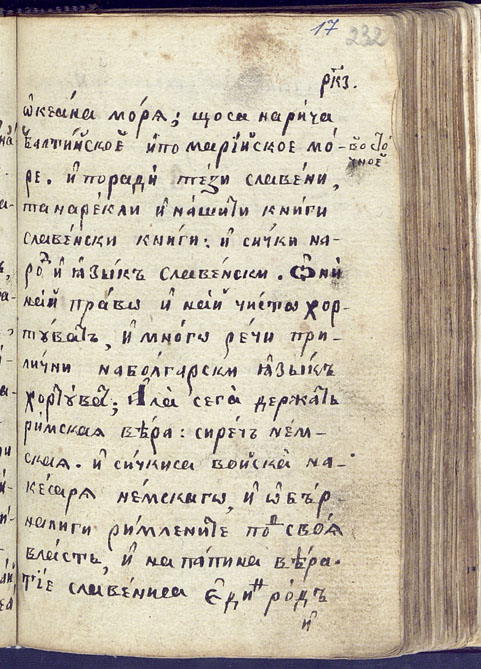 17 232
рк҃з.
ѡ҆кеа́на мо́рѧ; щоса нари́ча
Балти́йское и҆помарі́йское мо́-
восто́чное
ре. и҆поради́ те́зи славе́ни,
танаре́кли и҆на́шити книги
славе́нски книги: и҆ си́чки на-
роⷣ и҆ ꙗ҆зы́къ славе́нски. Ѡ҆ни́
най пра́вѡ и҆ най чи́стѡ хор-
тꙋ́ватъ, и҆ мно́гѡ ре́чи при-
ли́чни наболгарски ꙗ҆зы́къ
хортꙋ́ватъ; А҆ла сега̀ держа́тъ
ри́мскаѧ вѣ́ра: сиречъ нем-
скаѧ. и҆ си́чкиса войска̀ на-
ке́сарѧ не́мскагѡ, и҆ ѡ҆бѣ́р-
налиги ри́млените поⷣ своѧ̀
власть, и҆ на па́пина вѣ́ра.
тіе славе́ниса є҆ди́н ро́дъ
и҆